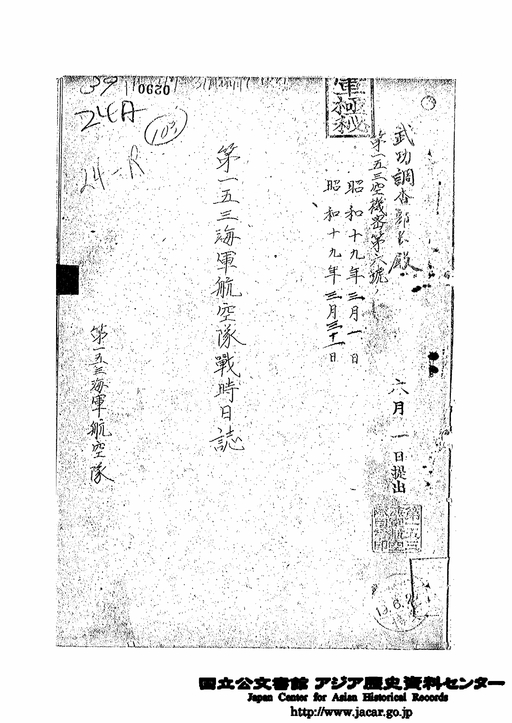 0290
24A
103
24-R
軍極秘
武功調査部長殿
第一五三空機密第六號ノ一
昭和十九年三月一日
昭和十九年三月三十一日
六月一日提出
第一五三海軍航空隊戰時日誌
第一五三海軍航空隊
国立公文書館 アジア歴史資料センター
Japan Center for Asian Historical Records
http://www.jacar.go.jp